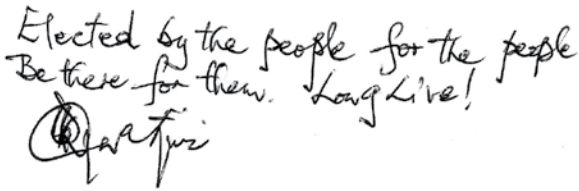 Elected by the people for the people
Be there for them. Long Live!